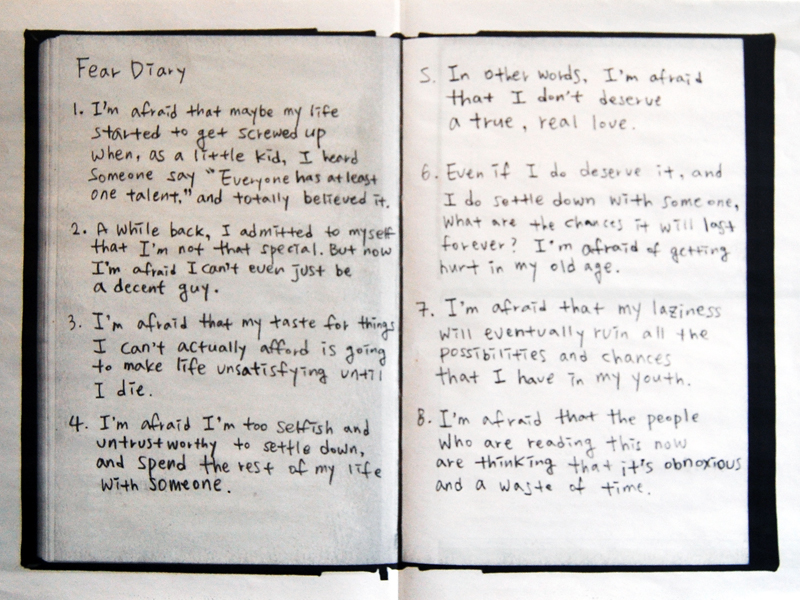 Fear Diary
1. I'm afraid that maybe my life
started to get screwed up
when, as a little kid, I heard
someone say "Everyone has at least
one talent," and totally believed it.
2. A while back, I admitted to myself
that I'm not that special. But now
I'm afraid I can't even just be
a decent guy.
3. I'm afraid that my taste for things
I can't actually afford is going
to make life unsatisfying until
I die.
4. I'm afraid I'm too selfish and
untrustworthy to settle down,
and spend the rest of my life
with someone.
5. In other words, I'm afraid
that I don't deserve
a true, real love.
6. Even if I do deserve it, and
I do settle down with someone,
what are the chances it will last
forever? I'm afraid of getting
hurt in my old age.
7. I'm afraid that my laziness
will eventually ruin all the
possibilities and chances
that I have in my youth.
8. I'm afraid that the people
who are reading this now
are thinking that it's obnoxious
and a waste of time.